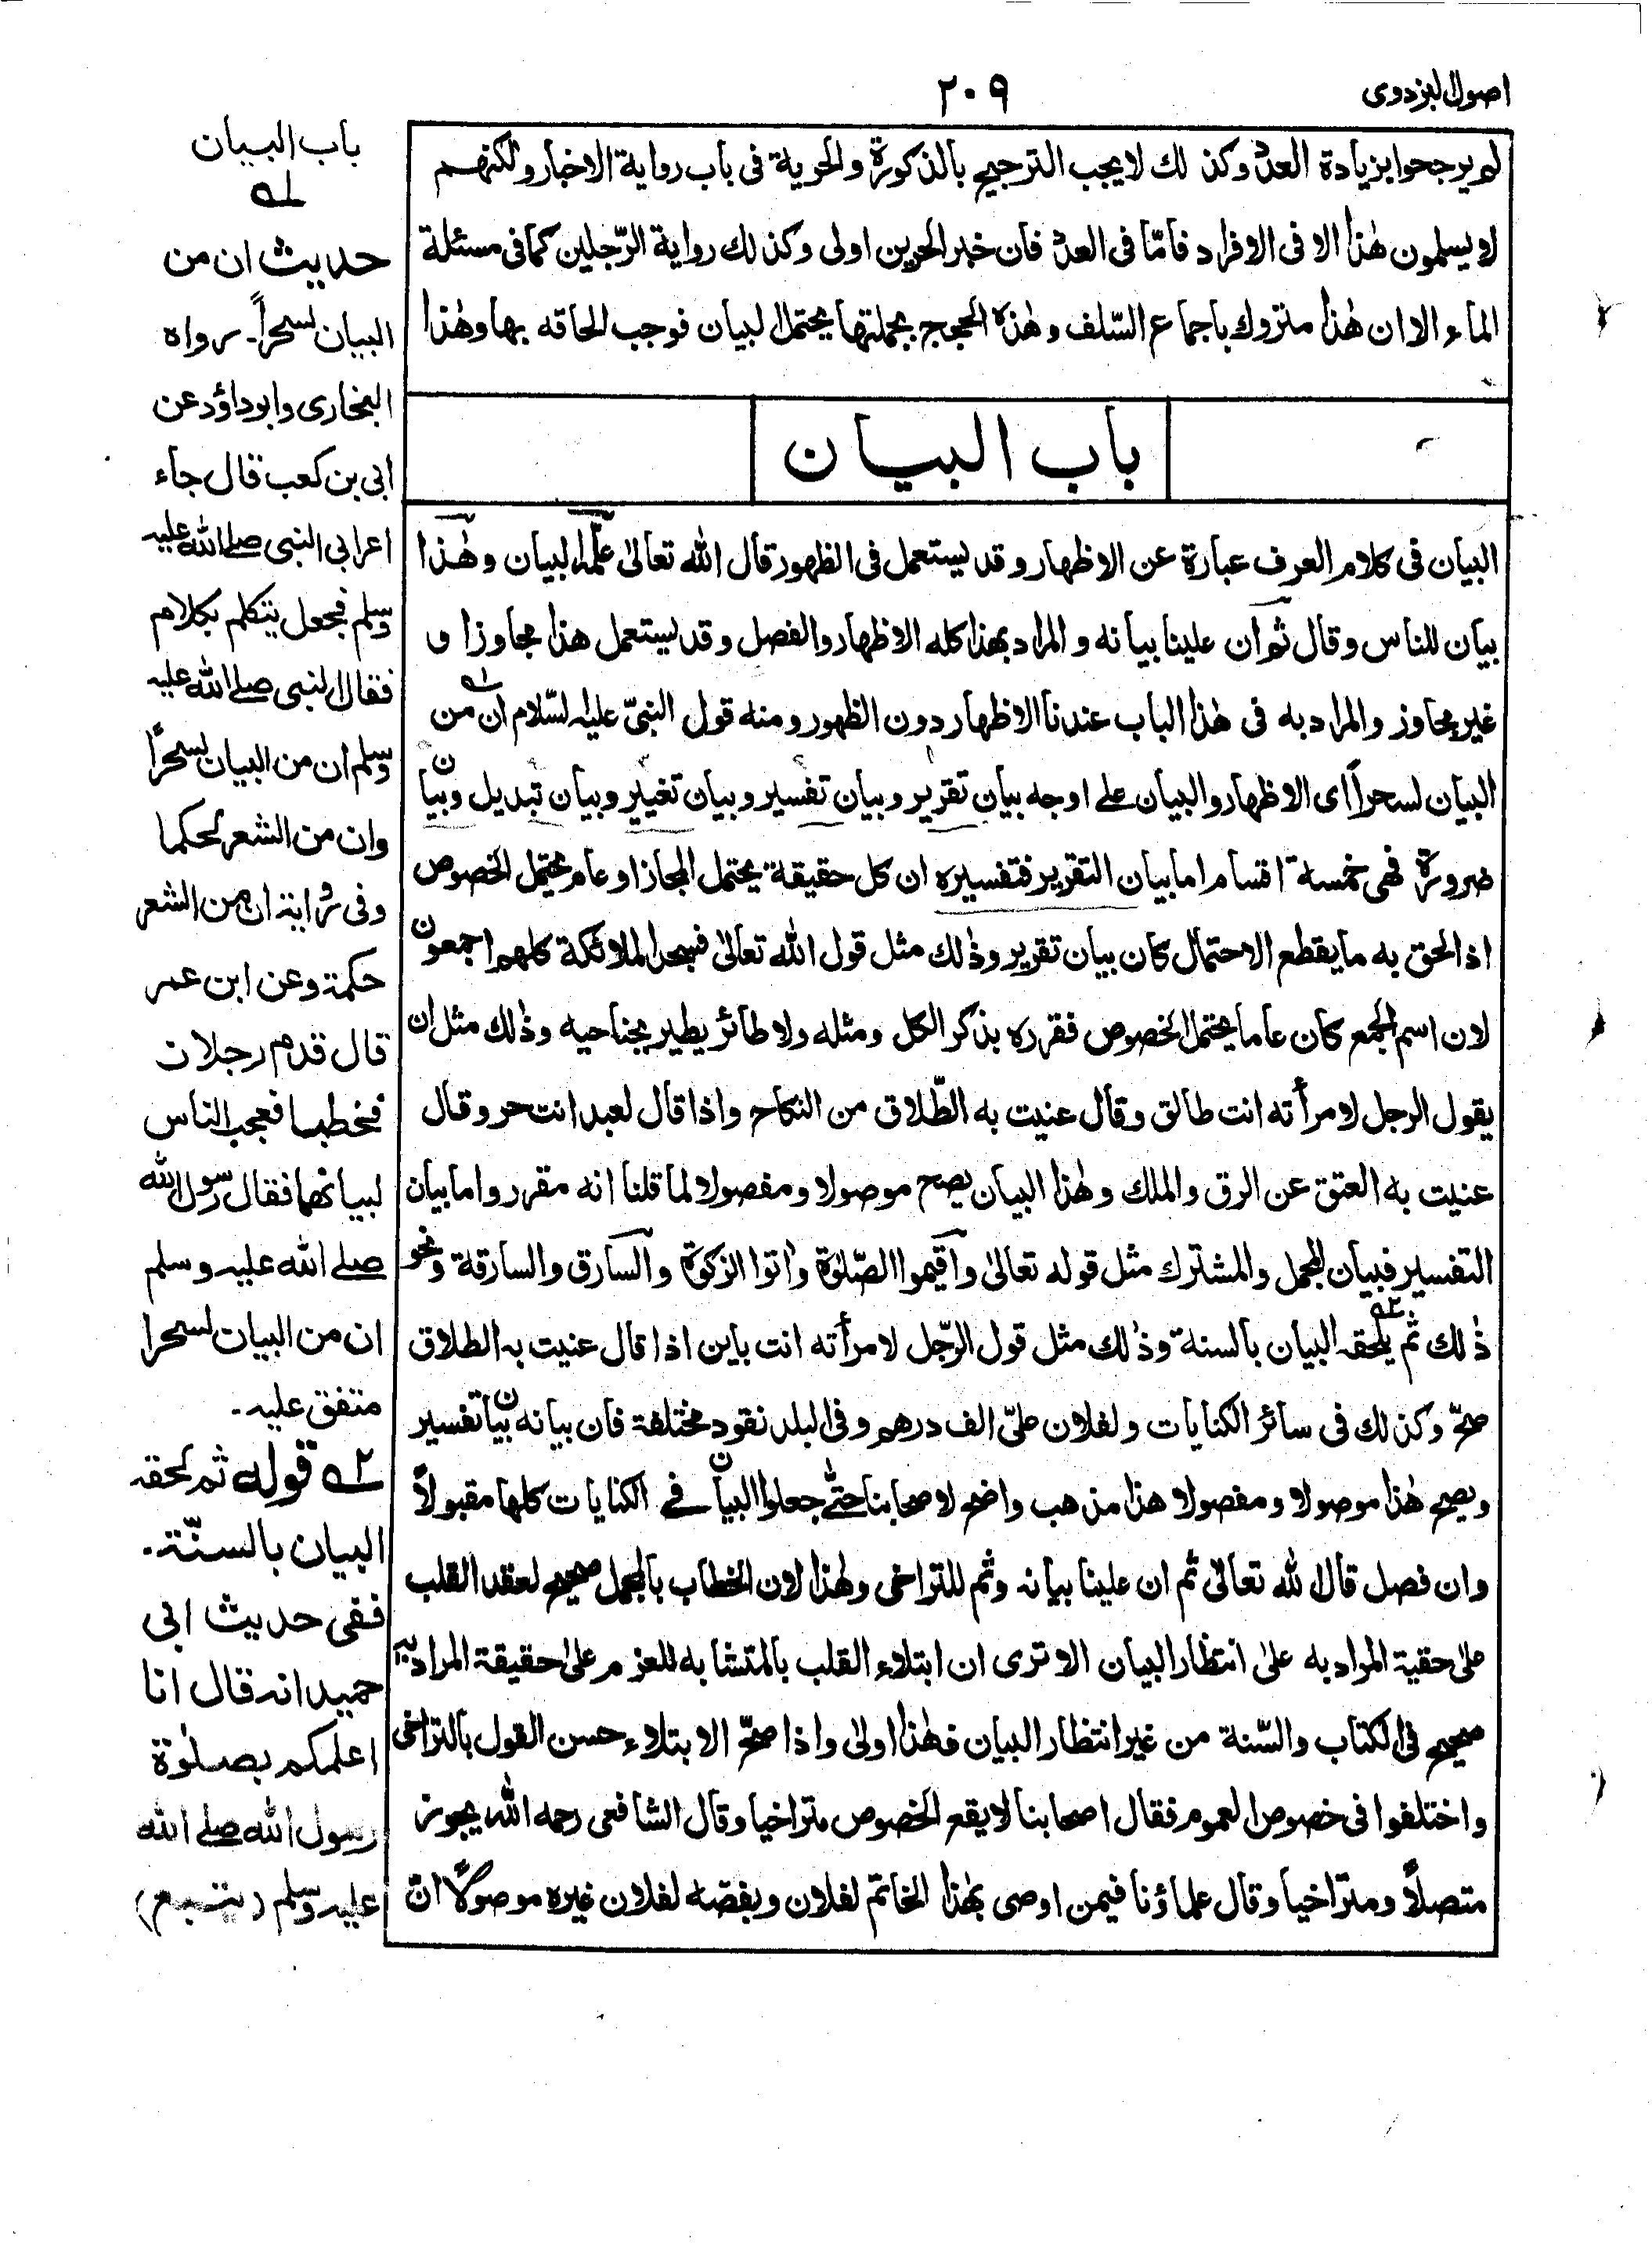 اصول البزدوی
۲۰۹
لم يرجحوا بزيادة العدد وكذلك لا يجب الترجيح بالذكورة والحرية فى باب رواية الاخبار ولكنهم
لا يسلمون هٰذا الا فى الافراد فامّا فى العدد فان خبر الحرين اولى وكذلك رواية الرّجلين كما فى مسئلة
الماء الا ان هٰذا متروك باجماع السّلف وهٰذه الحجج بجملتها يحتمل البيان فوجب الحاقه بها وهٰذا
باب البيان
البيان فى كلام العرف عبارة عن الاظهار وقد يستعمل فى الظهور قال الله تعالىٰ علّمه البيان وهٰذا
بيان للناس وقال ثم ان علينا بيانه والمراد بهذا كله الاظهار والفصل وقد يستعمل هذا مجاوزا و
غير مجاوز والمراد به فى هٰذا الباب عندنا الاظهار دون الظهور ومنه قول النبىّ عليه السّلام ۱ه ان من
البيان لسحراً اى الاظهار والبيان علے اوجه بيان تقرير وبيان تفسير وبيان تغيير وبيان تبديل وبيان
ضرورة فهى خمسة اقسام اما بيان التقرير فتفسيره ان كل حقيقة يحتمل المجاز او عام يحتمل الخصوص
اذا لحق به ما يقطع الاحتمال كان بيان تقرير وذٰلك مثل قول الله تعالىٰ فسجد الملائكة كلهم اجمعون
لان اسم الجمع كان عاما يحتمل الخصوص فقرره بذكر الكل ومثله ولا طائر يطير بجناحيه وذٰلك مثل ان
يقول الرجل لامرأته انت طالق وقال عنيت به الطّلاق من النكاح واذا قال لعبد انت حر وقال
عنيت به العتق عن الرق والملك وهٰذا البيان يصح موصولا ومفصولا لما قلنا انه مقرر واما بيان
التفسير فبيان المجمل والمشترك مثل قوله تعالىٰ واقيموا الصّلوٰة واٰتوا الزكوٰة والسارق والسارقة ونحو
ذٰلك ثم ۲ه يلحقه البيان بالسنة وذٰلك مثل قول الرّجل لامرأته انت باين اذا قال عنيت به الطلاق
صحّ وكذلك فى سائر الكنايات ولفلان علىّ الف درهم وفى البلد نقود مختلفة فان بيانه بيان تفسير
ويصح هٰذا موصولا ومفصولا هذا مذهب واضح لاصحابنا حتّٰى جعلوا البيان فے الكنايات كلها مقبولاً
وان فصل قال الله تعالىٰ ثم ان علينا بيانه وثم للتراخى ولهٰذا لان الخطاب بالمجمل صحيح لعقد القلب
علىٰ حقية المراد به علىٰ انتظار البيان الا ترى ان ابتلاء القلب بالمتشابه للعزم علىٰ حقيقة المراد به
صحيح فى الكتاب والسّنة من غير انتظار البيان فهٰذا اولىٰ واذا صحّ الابتلاء حسن القول بالتراخى
واختلفوا فى خصوص العموم فقال اصحابنا لا يقع الخصوص متراخيا وقال الشافعى رحمه الله يجوز
متصلاً ومتراخيا وقال علماؤنا فيمن اوصى بهٰذا الخاتم لفلان وبفصه لفلان غيره موصولاً ان
باب البيان
۱ه
حديث ان من
البيان لسحراً۔ رواه
البخارى وابوداؤد عن
ابى بن كعب قال جاء
اعرابى النبى صلے الله عليه
وسلم فجعل يتكلم بكلام
فقال النبى صلے الله عليه
وسلم ان من البيان لسحراً
وان من الشعر لحكما
وفى رواية ان من الشعر
حكمة وعن ابن عمر
قال قدم رجلان
فخطبا فعجب الناس
لبيانهما فقال رسول الله
صلے الله عليه وسلم
ان من البيان لسحرا
متفق عليه۔
۲ه قوله ثم لحقه
البيان بالسنّة۔
ففى حديث ابى
حميد انه قال انا
اعلمكم بصلوٰة
رسول الله صلے الله
عليه وسلم